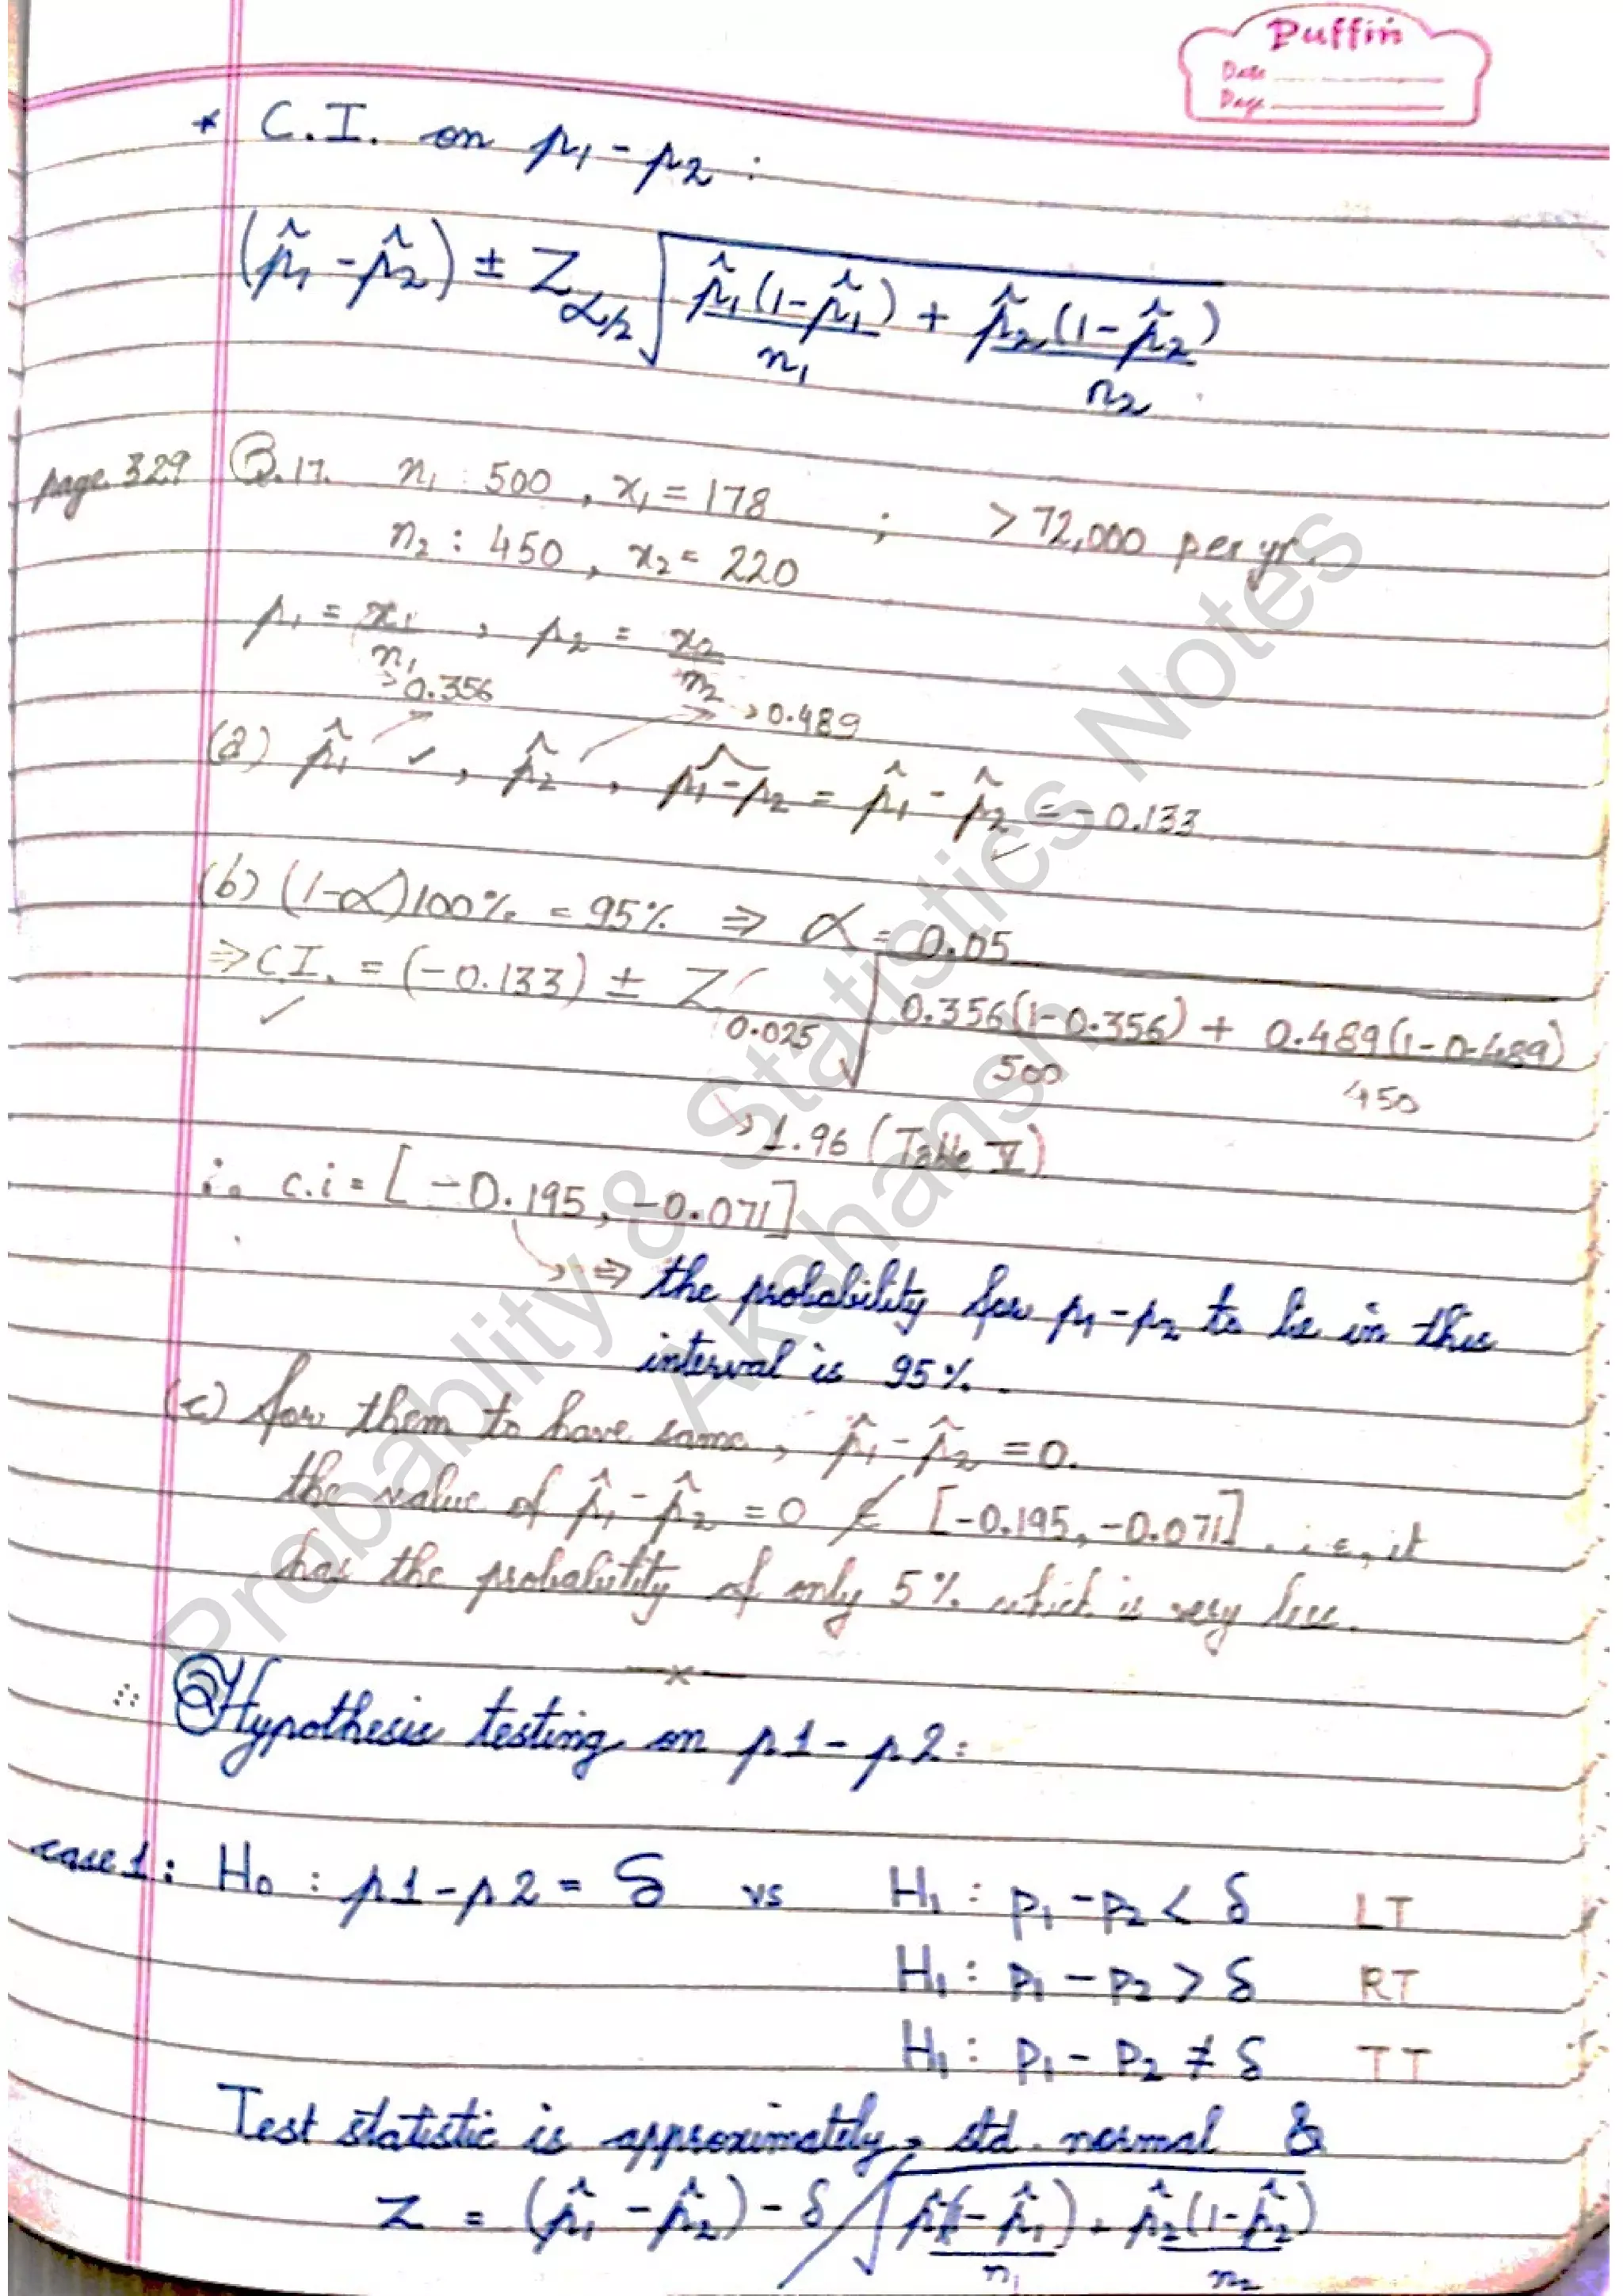 Puffin
Date
Page
* C.I. on p₁ - p₂ :
(p̂₁ - p̂₂) ± Z_α/2 √( p̂₁(1-p̂₁)/n₁ + p̂₂(1-p̂₂)/n₂ )
page 329 Q.17. n₁ : 500 , x₁ = 178 ; > 72,000 per yr.
n₂ : 450 , x₂ = 220
p₁ = x₁/n₁ , p₂ = x₂/n₂
→ 0.356 → 0.489
(a) p̂₁ ✓ , p̂₂ , p₁-p₂^ = p̂₁ - p̂₂ = -0.133
(b) (1-α)100% = 95% ⇒ α = 0.05
⇒ C.I. = (-0.133) ± Z_0.025 √( 0.356(1-0.356)/500 + 0.489(1-0.489)/450 )
→ 1.96 (Table V)
∴ c.i = [-0.195, -0.071]
→ ⇒ the probability for p₁-p₂ to lie in this
interval is 95%.
(c) for them to have same, p̂₁ - p̂₂ = 0.
the value of p̂₁ - p̂₂ = 0 ∉ [-0.195, -0.071] . i.e, it
has the probability of only 5% which is very less.
—x—
Hypothesis testing on p1 - p2:
case 1: H₀ : p1 - p2 = δ vs H₁ : p₁ - p₂ < δ LT
H₁ : p₁ - p₂ > δ RT
H₁ : p₁ - p₂ ≠ δ TT
Test statistic is approximately, std. normal &
Z = (p̂₁ - p̂₂) - δ / √( p̂₁(1-p̂₁)/n₁ + p̂₂(1-p̂₂)/n₂ )
Probability & Statistics Notes
Akshansh